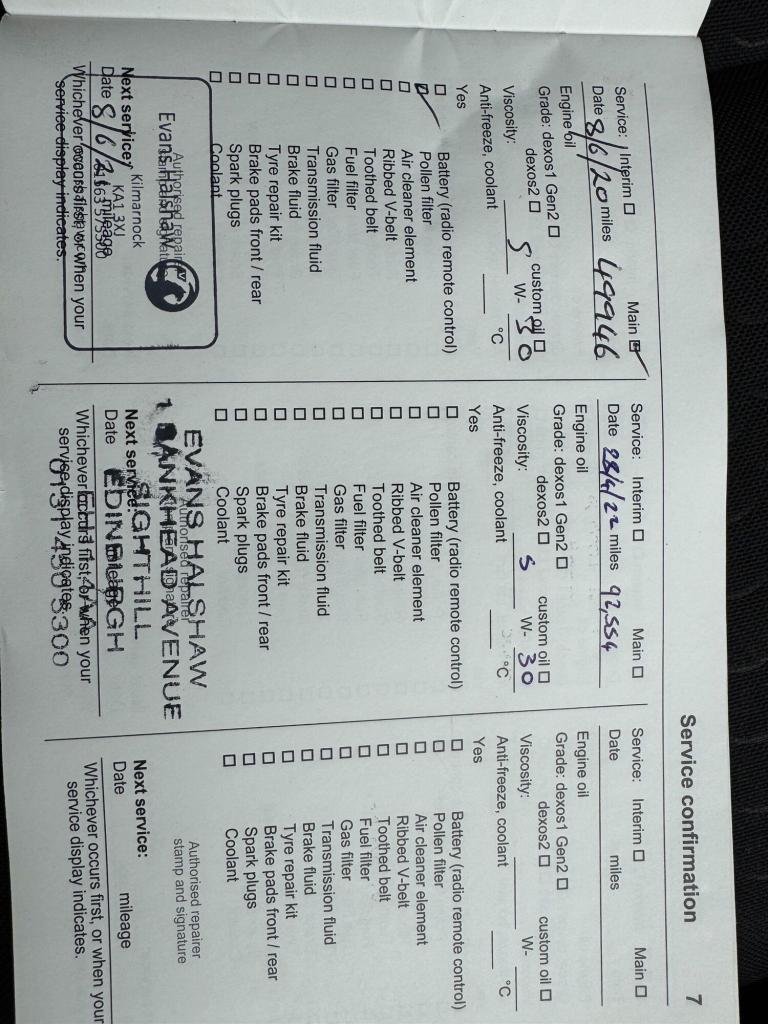 Service confirmation 7
Service: Interim ☐ Main ☑
Date 8/6/20 miles 49946
Engine oil
Grade: dexos1 Gen2 ☐ custom oil ☐
dexos2 ☐
Viscosity: 5 W- 30
Anti-freeze, coolant °C
Yes
☐ Battery (radio remote control)
☑ Pollen filter
☐ Air cleaner element
☐ Ribbed V-belt
☐ Toothed belt
☐ Fuel filter
☐ Gas filter
☐ Transmission fluid
☐ Brake fluid
☐ Tyre repair kit
☐ Brake pads front / rear
☐ Spark plugs
☐ Coolant
Authorised repairer
Evans Halshaw
Kilmarnock
KA1 3XJ
Next service:
Date 8/6/21 mileage
Whichever occurs first, or when your
service display indicates.
Service: Interim ☐ Main ☐
Date 28/4/22 miles 92,554
Engine oil
Grade: dexos1 Gen2 ☐ custom oil ☐
dexos2 ☐
Viscosity: 5 W- 30
Anti-freeze, coolant °C
Yes
☐ Battery (radio remote control)
☐ Pollen filter
☐ Air cleaner element
☐ Ribbed V-belt
☐ Toothed belt
☐ Fuel filter
☐ Gas filter
☐ Transmission fluid
☐ Brake fluid
☐ Tyre repair kit
☐ Brake pads front / rear
☐ Spark plugs
☐ Coolant
Authorised repairer
EVANS HALSHAW
1 BANKHEAD AVENUE
SIGHTHILL
EDINBURGH
Next service:
Date mileage
Whichever occurs first, or when your
service display indicates.
Service: Interim ☐ Main ☐
Date miles
Engine oil
Grade: dexos1 Gen2 ☐ custom oil ☐
dexos2 ☐
Viscosity: W-
Anti-freeze, coolant °C
Yes
☐ Battery (radio remote control)
☐ Pollen filter
☐ Air cleaner element
☐ Ribbed V-belt
☐ Toothed belt
☐ Fuel filter
☐ Gas filter
☐ Transmission fluid
☐ Brake fluid
☐ Tyre repair kit
☐ Brake pads front / rear
☐ Spark plugs
☐ Coolant
Authorised repairer
stamp and signature
Next service:
Date mileage
Whichever occurs first, or when your
service display indicates.